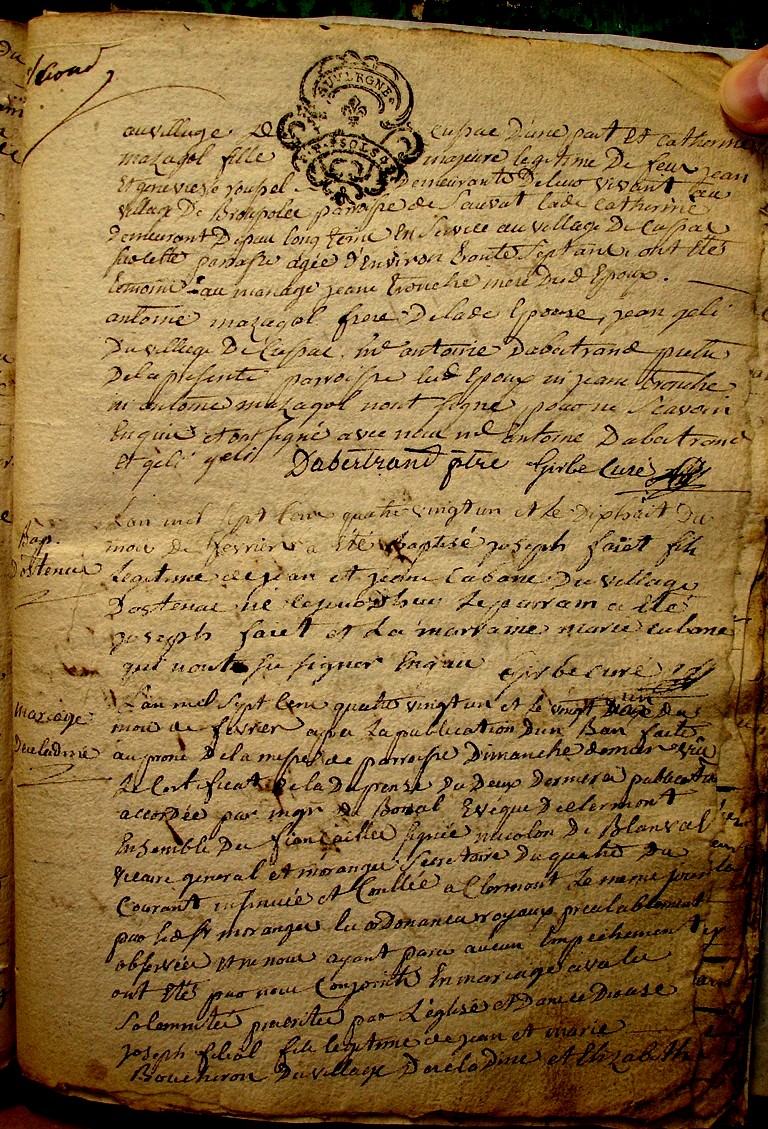 AUVERGNE
au village de Cussac d'une part et Catherine
mazagol fille majeure legitime de feu jean
Et genevieve demeurants de leur vivant au
village de parroisse de Sauvat lade Catherine
demeurant depuis long tems En Service au village de Cussac
agée d'environ trante Sept ans, ont étés
temoins au mariage jeane tronche mere dud Epoux.
antoine mazagol frere de lade Epouse, jean geli
du village de Cussac. mre antoine Dabertrand pretre
de la presente parroisse led Epoux ni jeane tronche
ni antoine mazagol n'ont signé pour ne Scavoir
Enquis et ont signé avec nous mre antoine Dabertrand
et geli geli Dabertrand ptre Girbe Curé
Bap.
Dostenac
L'an mil sept Cent quatre vingt un et le dixhuit du
mois de fevrier a été Baptisé joseph faiet fils
legitime de jean et jeane Cabane du village
Dostenac né le parrain a été
joseph faiet et la marraine marie Cabane
qui n'ont su signer Enquis Girbe Curé
mariage
L'an mil Sept Cent quatre vingt un et le vingt du
mois de fevrier après la publication d'un Ban faite
au prone de la messe de parroisse Dimanche dernier vû
le Certificat de la Dispense de Deux derniers publications
accordée par mgr de Bonal Evêque de Clermont
Ensemble des fiançailles signée de Blanval
vicaire general et moranges Secretaire du quatre du
Courant insinuée et Conllée a Clermont le meme jour
par led sr moranges les ordonances royaux prealablement
observées et ne nous ayant paru aucun Empechement
ont étés par nous Conjoints En mariage avec les
Solemnités prescrites par L'église et Dans ce Diocese
joseph filiol fils legitime de jean et marie
Boucheron du village et Elizabeth